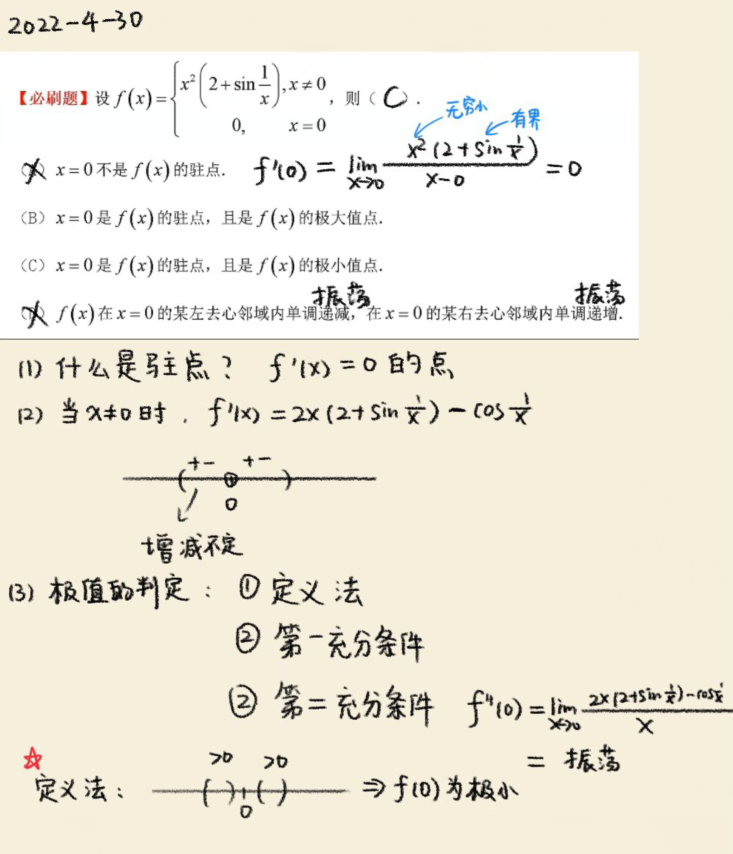 2022-4-30
【必刷题】设 f(x)={x²(2+sin 1/x), x≠0; 0, x=0, 则( C ).
无穷小 有界
(A) x=0不是f(x)的驻点. f'(0) = lim x→0 x²(2+sin 1/x)/(x-0) = 0
(B) x=0是f(x)的驻点，且是f(x)的极大值点.
(C) x=0是f(x)的驻点，且是f(x)的极小值点.
振荡 振荡
(D) f(x)在x=0的某左去心邻域内单调递减，在x=0的某右去心邻域内单调递增.
(1) 什么是驻点？ f'(x)=0 的点
(2) 当x≠0时. f'(x)=2x(2+sin 1/x)-cos 1/x
+- +-
0
增减不定
(3) 极值的判定：① 定义法
② 第一充分条件
② 第二充分条件 f''(0)=lim x→0 2x(2+sin 1/x)-cos 1/x / x
= 振荡
>0 >0
定义法： ⇒ f(0)为极小
0